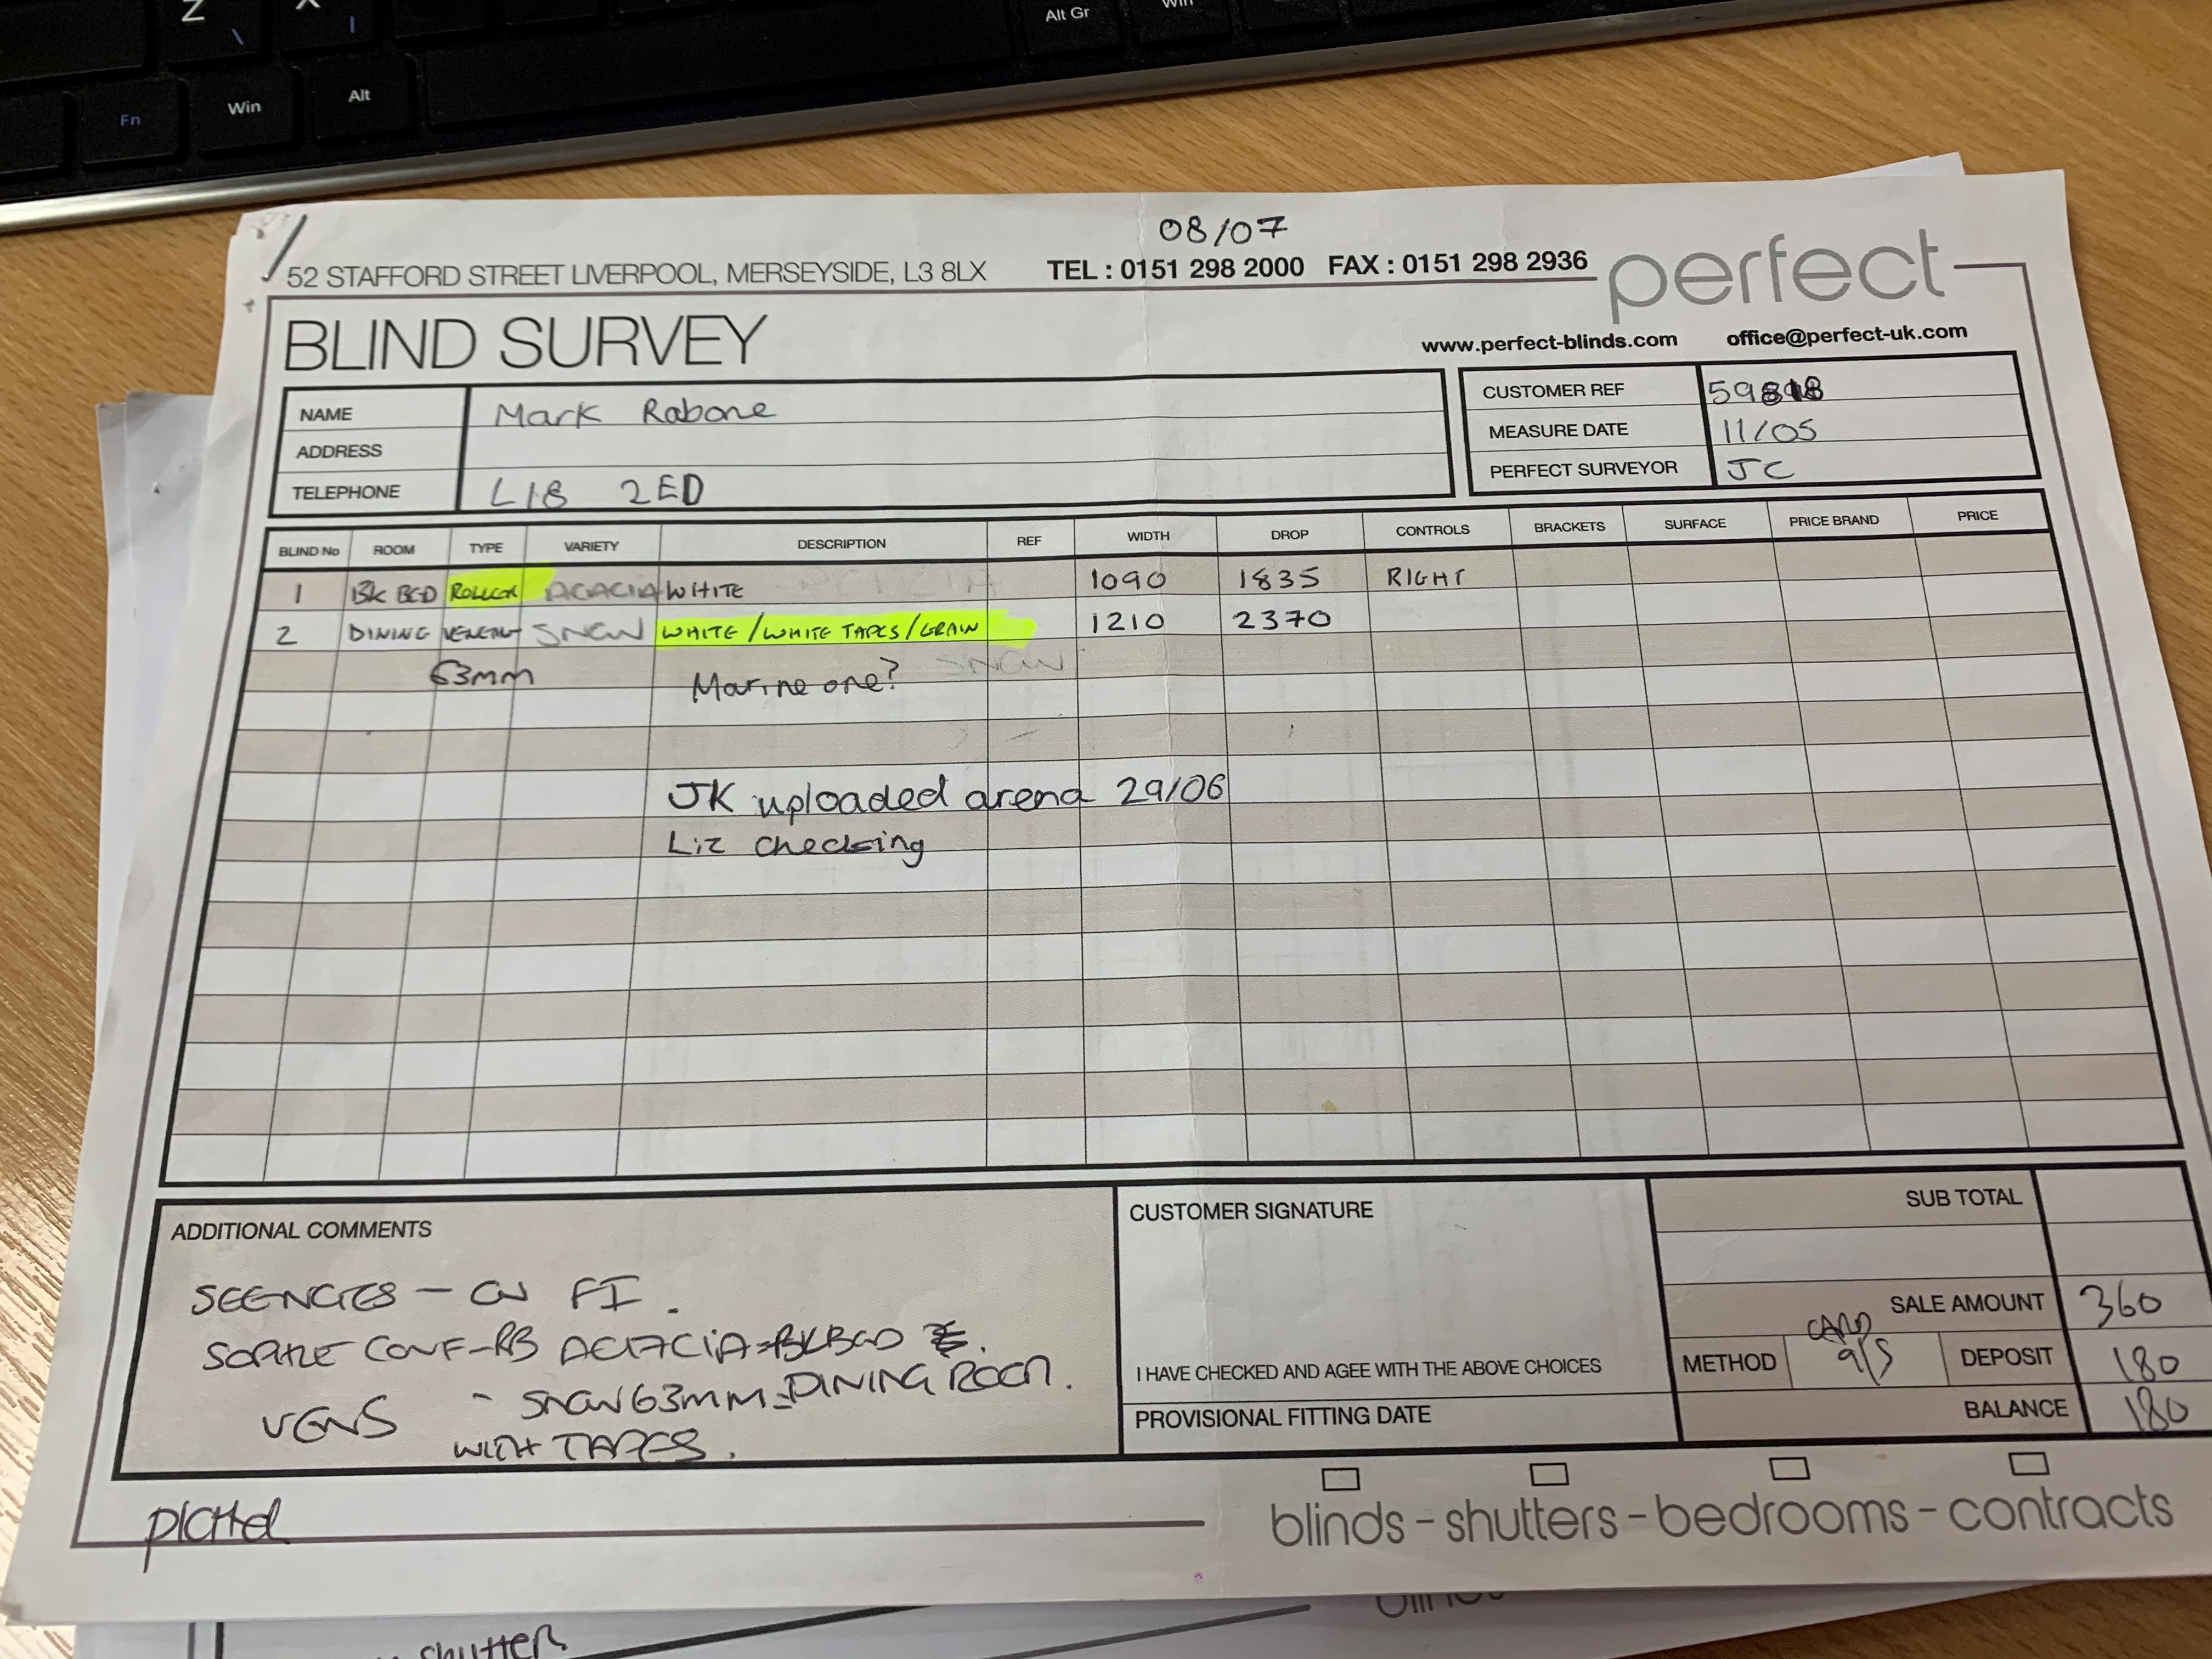 Z \ X |
Alt Gr Win
Fn Win Alt
08/07
52 STAFFORD STREET LIVERPOOL, MERSEYSIDE, L3 8LX TEL : 0151 298 2000 FAX : 0151 298 2936 perfect
BLIND SURVEY
www.perfect-blinds.com office@perfect-uk.com
NAME Mark Rabone
ADDRESS
TELEPHONE L18 2ED
CUSTOMER REF
MEASURE DATE 11/05
PERFECT SURVEYOR JC
BLIND No ROOM TYPE VARIETY DESCRIPTION REF WIDTH DROP CONTROLS BRACKETS SURFACE PRICE BRAND PRICE
1 BK BED ROLLER ACACIA WHITE 1090 1835 RIGHT
2 DINING SNOW WHITE / WHITE TAPES / GRAIN 1210 2370
63mm Marine one? SNOW
JK uploaded arena 29/06
Liz checking
ADDITIONAL COMMENTS
FI.
CONF-RB BKBED
VENS - SNOW 63MM - DINING ROOM.
WITH TAPES.
CUSTOMER SIGNATURE
I HAVE CHECKED AND AGEE WITH THE ABOVE CHOICES
PROVISIONAL FITTING DATE
SUB TOTAL
SALE AMOUNT 360
METHOD CARD 9/5 DEPOSIT 180
BALANCE 180
blinds - shutters - bedrooms - contracts
shutter